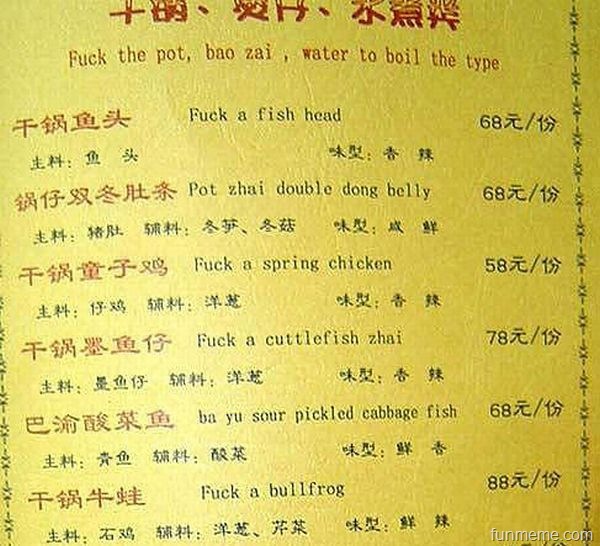 干锅、煲仔、水煮类
Fuck the pot, bao zai , water to boil the type
干锅鱼头 Fuck a fish head 68元/份
主料：鱼 头 味型：香 辣
锅仔双冬肚条 Pot zhai double dong belly 68元/份
主料：猪肚 辅料：冬笋、冬菇 味型：咸 鲜
干锅童子鸡 Fuck a spring chicken 58元/份
主料：仔鸡 辅料：洋葱 味型：香 辣
干锅墨鱼仔 Fuck a cuttlefish zhai 78元/份
主料：墨鱼仔 辅料：洋葱 味型：香 辣
巴渝酸菜鱼 ba yu sour pickled cabbage fish 68元/份
主料：青鱼 辅料：酸菜 味型：鲜 香
干锅牛蛙 Fuck a bullfrog 88元/份
主料：石鸡 辅料：洋葱、芹菜 味型：鲜 辣
funmeme.com